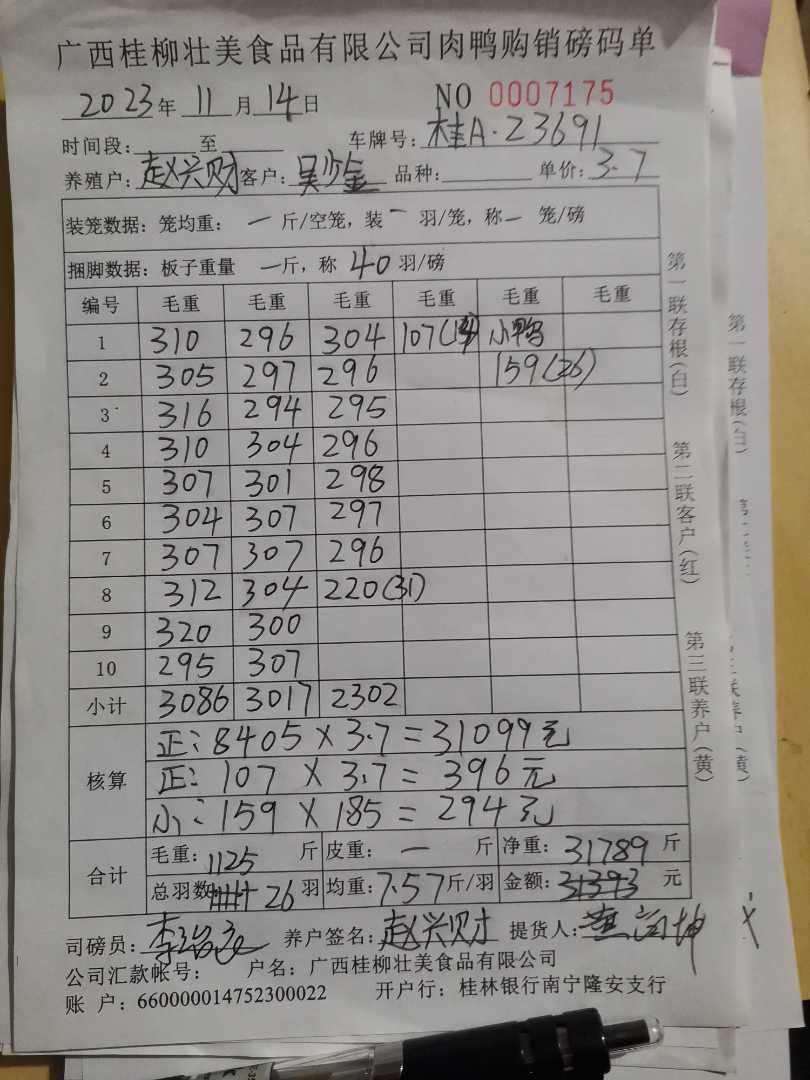 广西桂柳壮美食品有限公司肉鸭购销磅码单
2023年 11月14日 NO 0007175
时间段: 至 车牌号: 桂A·23691
养殖户: 赵兴财 客户: 吴少金 品种: 单价: 3.7
装笼数据: 笼均重: 一 斤/空笼, 装 一 羽/笼, 称 一 笼/磅
捆脚数据: 板子重量 一斤, 称 40 羽/磅
编号 毛重 毛重 毛重 毛重 毛重 毛重
1 310 296 304 107( ) 小鸭
2 305 297 296 159(26)
3 316 294 295
4 310 304 296
5 307 301 298
6 304 307 297
7 307 307 296
8 312 304 220(31)
9 320 300
10 295 307
小计 3086 3017 2302
核算
正: 8405 × 3.7 = 31099元
正: 107 × 3.7 = 396元
小: 159 × 185 = 294元
合计
毛重: 1125 斤 皮重: 一 斤 净重: 31789 斤
总羽数 26 羽 均重: 7.57斤/羽 金额: 31393 元
司磅员: 养户签名: 赵兴财 提货人:
公司汇款帐号: 户名: 广西桂柳壮美食品有限公司
账 户: 660000014752300022 开户行: 桂林银行南宁隆安支行
第一联存根(白) 第二联客户(红) 第三联养户(黄)
第一联存根(白)